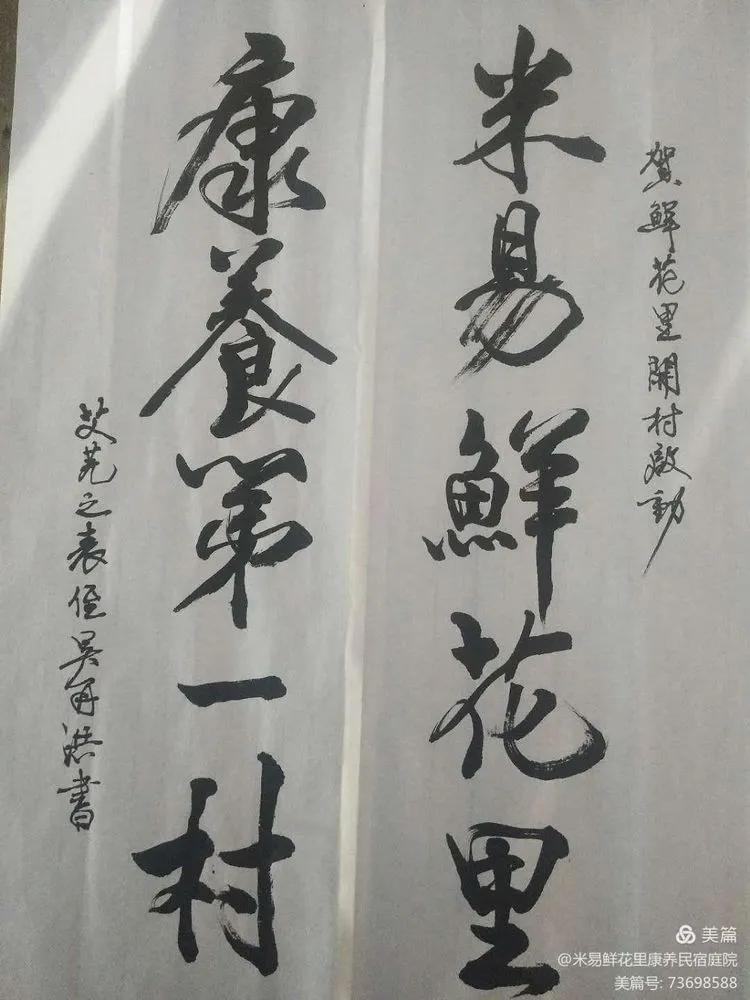 賀鮮花里開村啟動
米易鮮花里
康養第一村
艾芜之表侄吴再洪書
美篇
@米易鲜花里康养民宿庭院
美篇号: 73698588